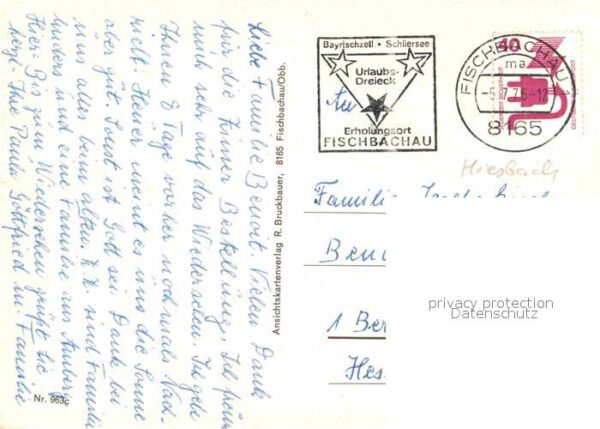 Liebe Familie Benoit. Vielen Dank
für die Zimmer Bestellung, Ich freue
mich sehr auf das Wiedersehen. Ich gebe
Ihnen 8 Tage vorher nochmals Nach-
richt. Heuer meint es uns die Sonne
aber gut. Sonst ist Gott sei Dank bei
uns alles beim alten. Z.Zt. sind Familie
und eine Familie aus
hier. Bis zum Wiedersehen grüßt Sie
herzl. Ihre Gottfried u. Familie
Nr. 963c
Ansichtskartenverlag R. Bruckbauer, 8165 Fischbachau/Obb.
Bayrischzell • Schliersee
Urlaubs-
Dreieck
An
Erholungsort
FISCHBACHAU
FISCHBACHAU
ma
7.76-12
8165
40
DEUTSCHE BUNDESPOST
Miesbach
Familie
1 Ber
Hes
privacy protection
Datenschutz